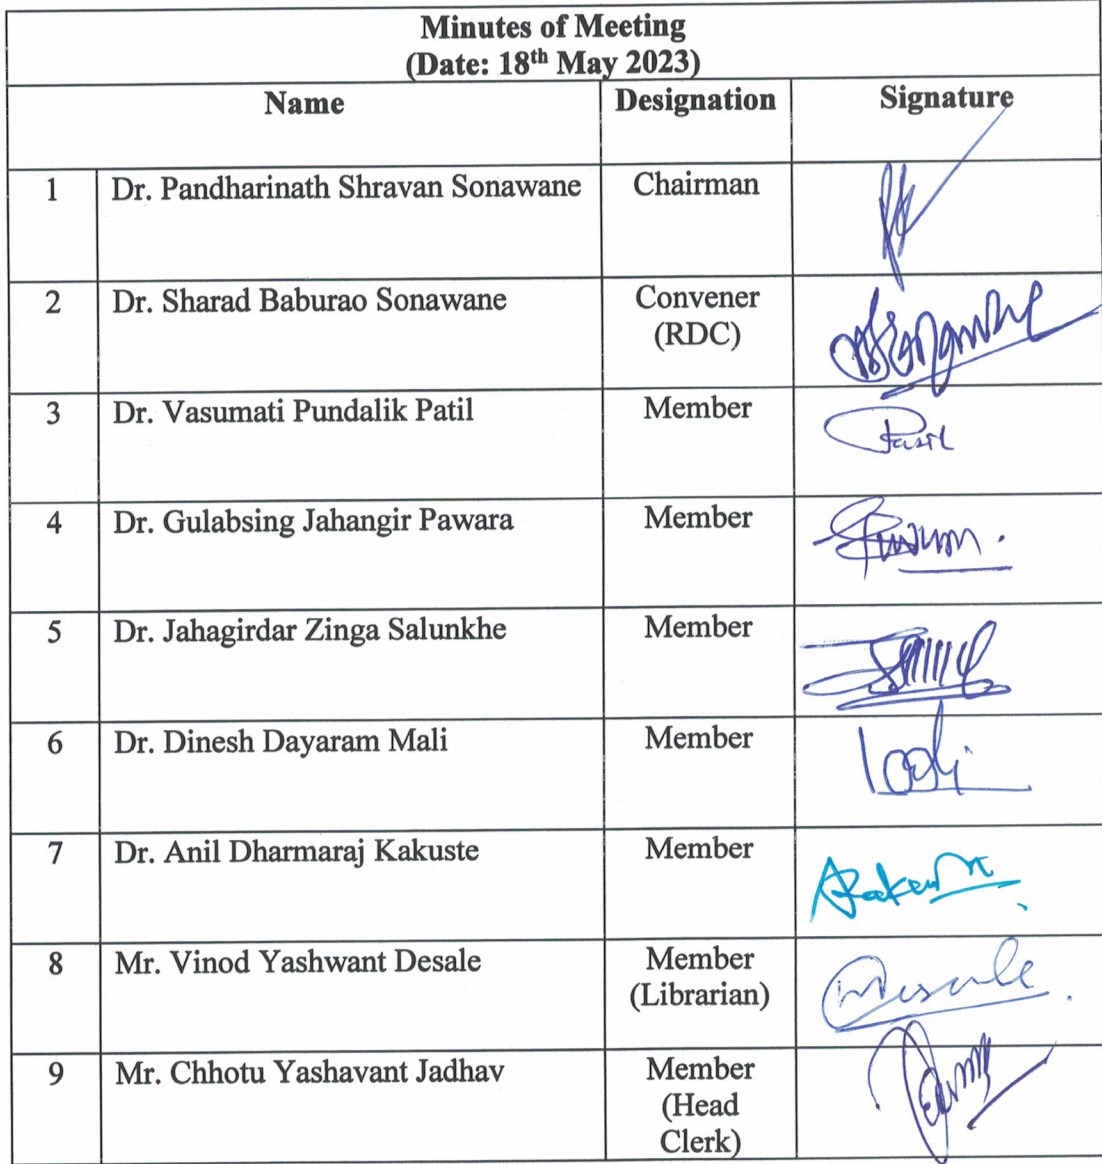 Minutes of Meeting
(Date: 18th May 2023)
Name Designation Signature
1 Dr. Pandharinath Shravan Sonawane Chairman
2 Dr. Sharad Baburao Sonawane Convener
(RDC)
3 Dr. Vasumati Pundalik Patil Member
4 Dr. Gulabsing Jahangir Pawara Member
5 Dr. Jahagirdar Zinga Salunkhe Member
6 Dr. Dinesh Dayaram Mali Member
7 Dr. Anil Dharmaraj Kakuste Member
8 Mr. Vinod Yashwant Desale Member
(Librarian)
9 Mr. Chhotu Yashavant Jadhav Member
(Head
Clerk)